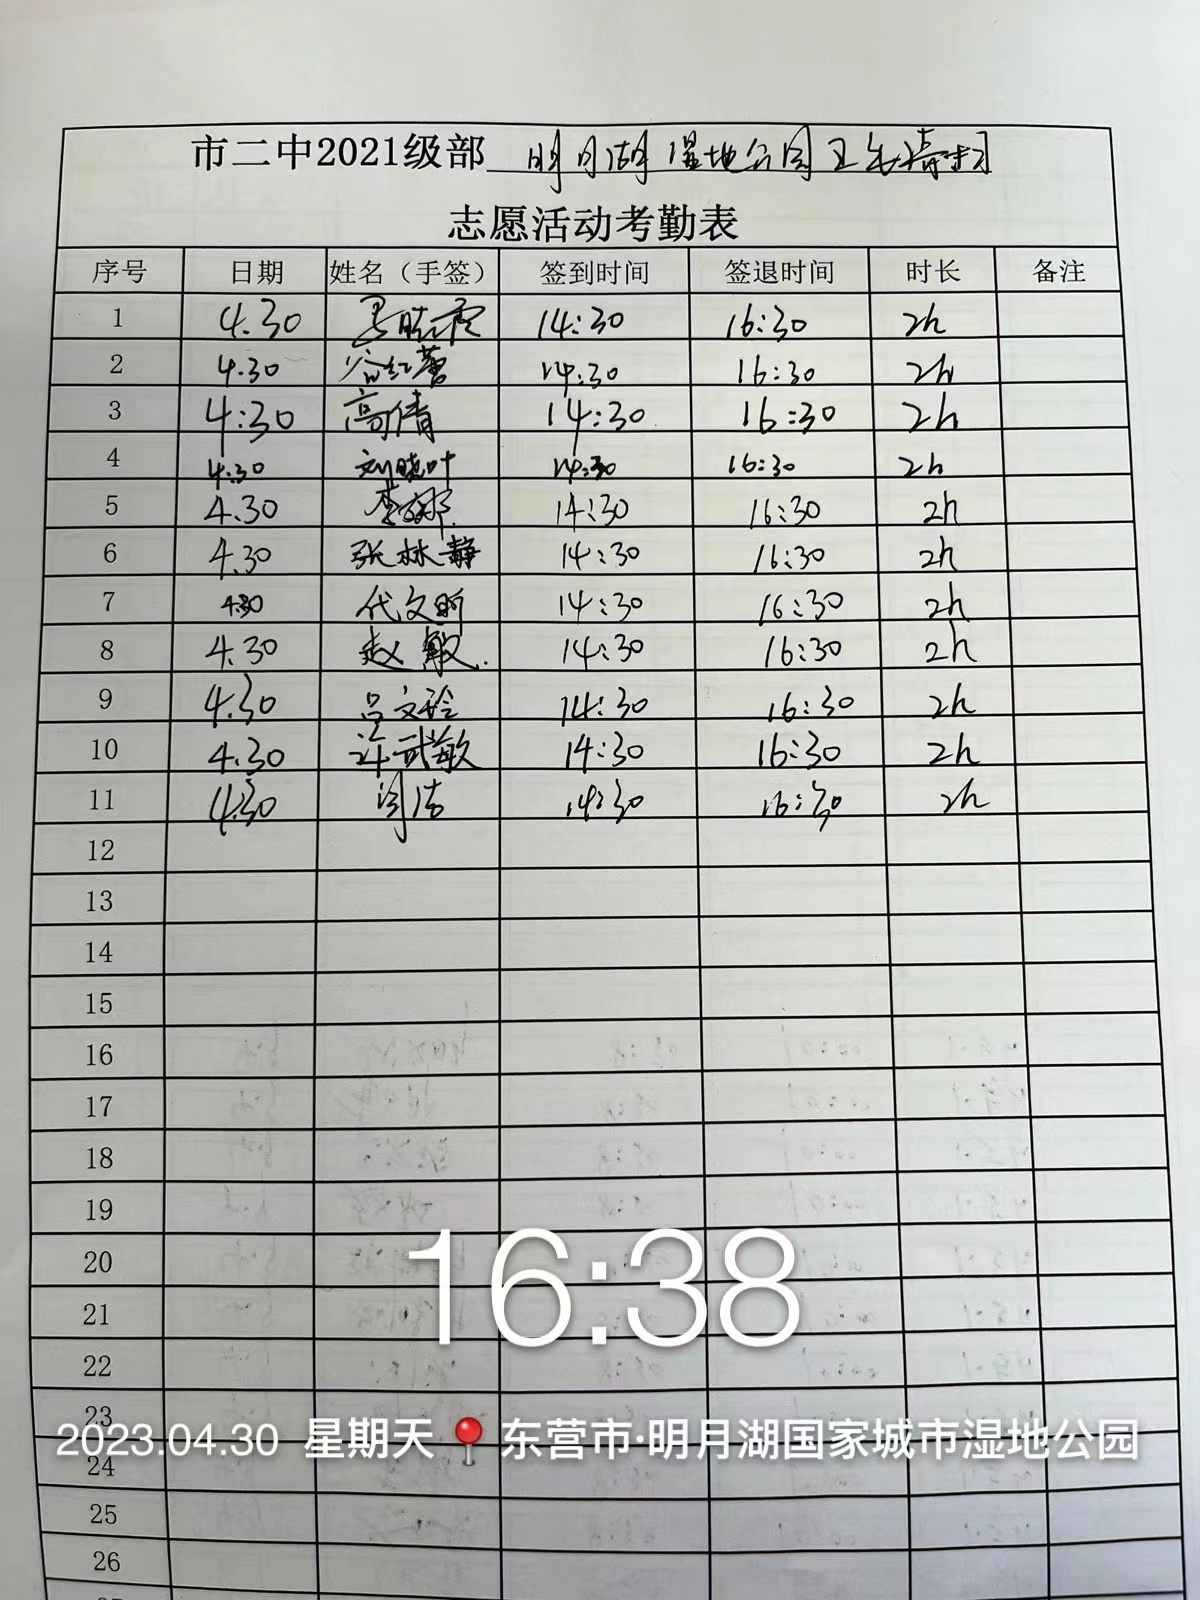 市二中2021级部 明月湖湿地公园卫生清扫
志愿活动考勤表
序号 日期 姓名（手签） 签到时间 签退时间 时长 备注
1 4.30 14:30 16:30 2h
2 4.30 14:30 16:30 2h
3 4:30 高倩 14:30 16:30 2h
4 4.30 刘晓叶 14:30 16:30 2h
5 4.30 李娜 14:30 16:30 2h
6 4.30 张林静 14:30 16:30 2h
7 4.30 代文昕 14:30 16:30 2h
8 4.30 赵敏 14:30 16:30 2h
9 4.30 吕文玲 14:30 16:30 2h
10 4.30 许武敏 14:30 16:30 2h
11 4.30 闫洁 14:30 16:30 2h
12
13
14
15
16
17
18
19
20
21
22
23
24
25
26
16:38
2023.04.30 星期天 东营市·明月湖国家城市湿地公园